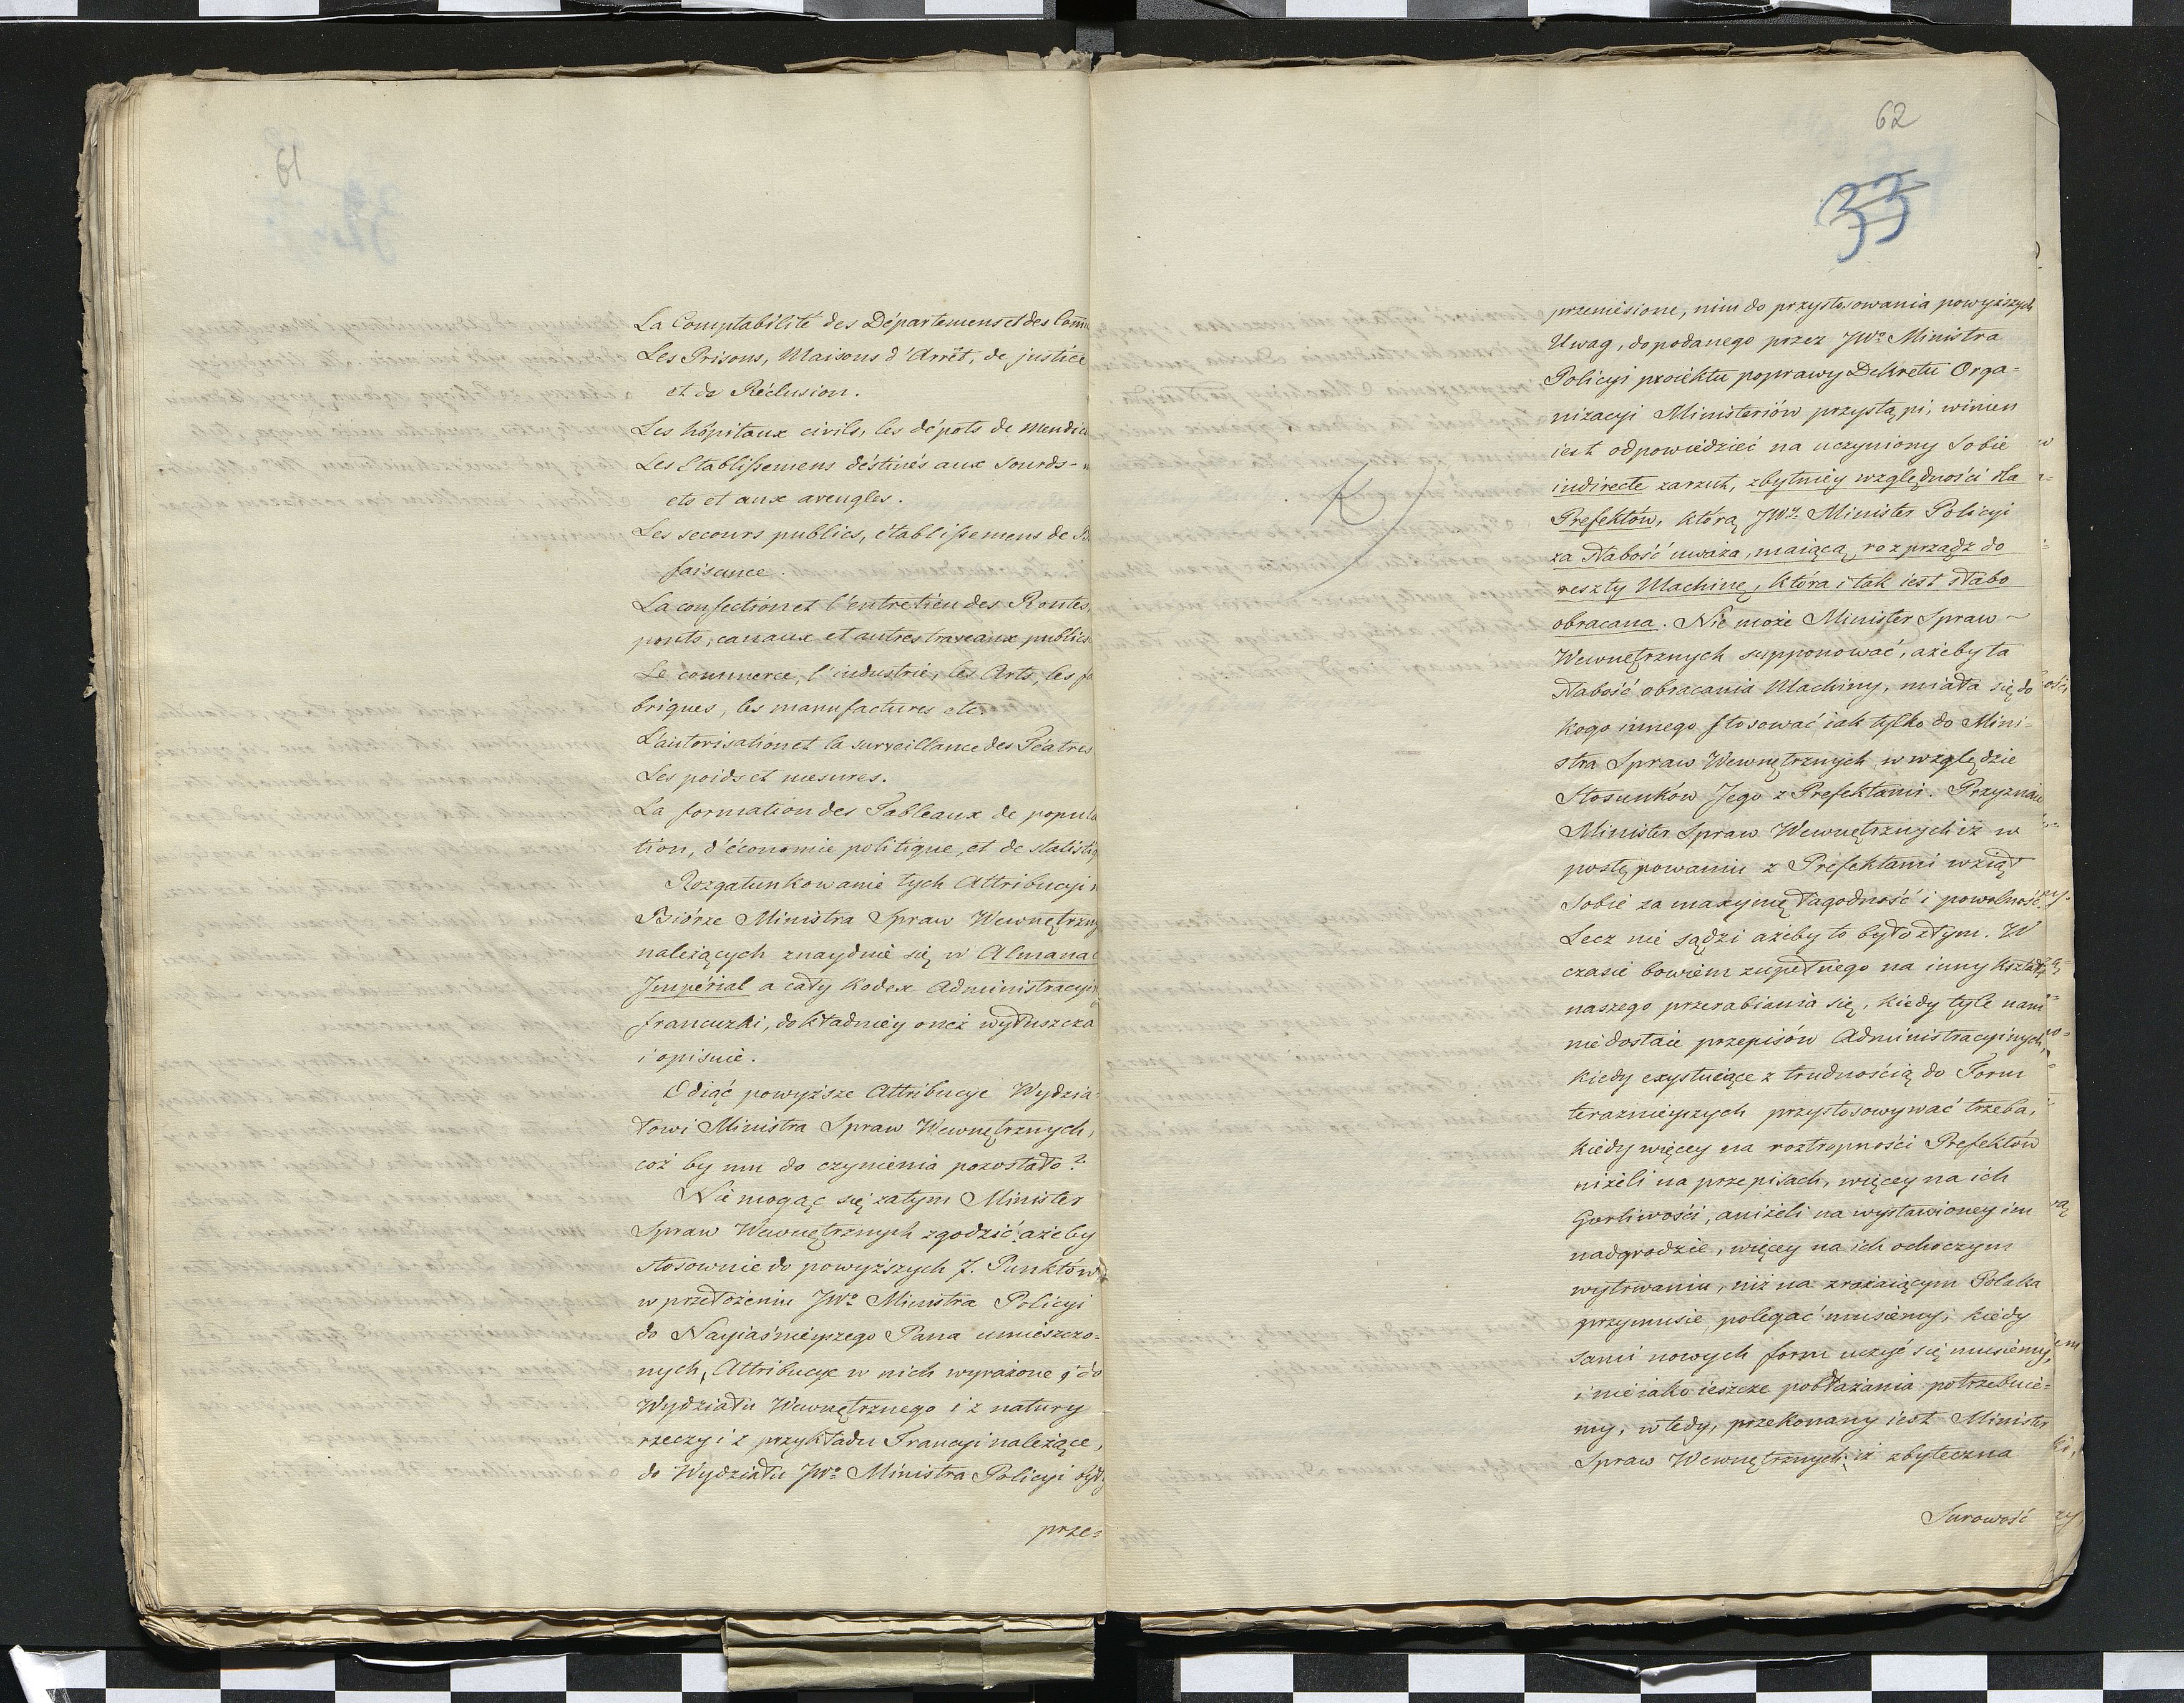 La Comptabilité des Départemens et des Comm
Les Prisons, Maisons d'Arrêt, de justice
et de Réclusion.
Les hôpitaux civils, les dépots de mendic
Les Etablissemens déstinés aux sourds-m
ets et aux aveugles.
Les secours publics, établissemens de B
faisance.
La confection et l'entretien des Routes,
ponts, canaux et autres travaux publics
Le commerce, l'industrie, les Arts, les fa
briques, les manufactures etc.
L'autorisation et la surveillance des Téatres
Les poids et mesures.
La formation des Tableaux de popula
tion, d'économie politique, et de statistiq
Rozgatunkowanie tych Attribucyi w
Biórze Ministra Spraw Wewnętrzny
należących znayduie się w Almanac
Impérial a cały Kodex Administracyin
francuzki, dokładniey oneż wyłuszcza
i opisuie.
Odiąć powyższe Attribucye Wydzia-
łowi Ministra Spraw Wewnętrznych,
coż by mu do czynienia pozostało?
Nie mogąc się zatym Minister
Spraw Wewnętrznych zgodzić, ażeby
stosownie do powyższych 7. Punktów
w przełożeniu JWo Ministra Policyi
do Nayiaśnieyszego Pana umieszczo=
nych, Attribucye w nich wyrażone, do
Wydziału Wewnętrznego i z natury
rzeczy i z przykładu Francyi należące,
do Wydziału JWo Ministra Policyi były
prze=
62
33
przeniesione, nim do przystosowania powyższych
Uwag, do podanego przez JWo Ministra
Policyi proiektu poprawy Dekretu Orga=
nizacyi Ministeriów przystąpi, winien
iest odpowiedzieć na uczyniony Sobie
indirecte zarzut, zbytniey względności dla
Prefektów, którą JWy Minister Policyi
za słabość uważa, maiącą rozprządz do
reszty Machinę, która i tak iest słabo
obracana. Nie może Minister Spraw
Wewnętrznych supponować, ażeby ta
słabość obracania Machiny, miała się do
kogo innego stosować iak tylko do Mini-
stra Spraw Wewnętrznych w względzie
Stosunków Jego z Prefektami. Przyznaie
Minister Spraw Wewnętrznych iż w
postępowaniu z Prefektami wziął
Sobie za maxymę łagodność i powolność.
Lecz nie sądzi ażeby to było złym. W
czasie bowiem zupełnego na inny kształt
naszego przerabiania się, kiedy tyle nam
nie dostaie przepisów Administracyinych,
kiedy exystuiące z trudnością do Form
teraznieyszych przystosowywać trzeba,
kiedy więcey na roztropności Prefektów
niżeli na przepisach, więcey na ich
Gorliwości, aniżeli na wystawioney im
nadgrodzie, więcey na ich ochoczym
wytrwaniu, niż na zrażaiącym Polaka
przymusie polegać musiemy, kiedy
sami nowych form uczyć się musiemy,
i nieiako ieszcze pobłażania potrzebuie=
my, wtedy, przekonany iest Minister
Spraw Wewnętrznych, iż zbyteczna
Surowość